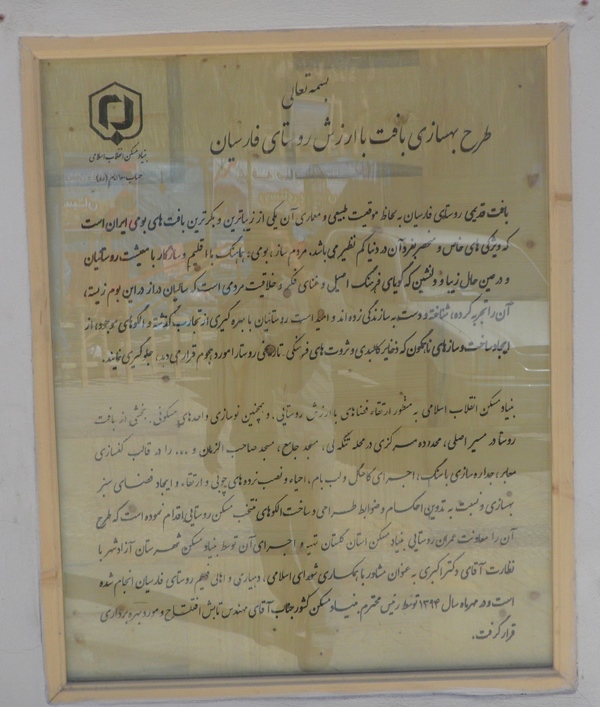 بسمه تعالی
طرح بهسازی بافت با ارزش روستای فارسیان
بنیاد مسکن انقلاب اسلامی
بافت قدیمی روستای فارسیان به لحاظ موقعیت طبیعی و معماری آن یکی از زیباترین و بکرترین بافت های بومی ایران است
که ویژگی های خاص و منحصر بفرد آن در دنیا کم نظیر می باشد. مردم ساز، بومی، هماهنگ با اقلیم و سازگار با معیشت روستائیان
و در عین حال زیبا و دلنشین که گویای فرهنگ اصیل و غنای فکر و خلاقیت مردمی است که سالیان دراز در این بوم زیسته،
آن را تجربه کرده، شناخته و دست به سازندگی زده اند و است روستائیان با بهره گیری از تجارب گذشته و الگوهای موجود، از
ایجاد ساخت و سازهای ناهمگون که ذخایر کالبدی و ثروت های فرهنگی - تاریخی روستا را مورد هجوم قرار می دهد، جلوگیری نمایند.
بنیاد مسکن انقلاب اسلامی به منظور ارتقاء فضاهای با ارزش روستایی، و همچنین نوسازی واحدهای مسکونی، بخشی از بافت
روستا در مسیر اصلی، محدوده مرکزی در محله تنگه لی، مسجد جامع، مسجد صاحب الزمان و ... را در قالب کفسازی
معابر، جداره سازی با سنگ، اجرای کاهگل و لب بام، احیاء و نصب نرده های چوبی و ارتقاء و ایجاد فضای سبز
بهسازی و نسبت به تدوین احکام و ضوابط طراحی و ساخت الگوهای منتخب مسکن روستایی اقدام نموده است که طرح
آن را معاونت عمران روستایی بنیاد مسکن استان گلستان تهیه و اجرای آن توسط بنیاد مسکن شهرستان آزادشهر با
نظارت آقای دکتر اکبری به عنوان مشاور با همکاری شورای اسلامی، دهیاری و اهالی فهیم روستای فارسیان انجام شده
است و در مهرماه سال ۱۳۹۴ توسط رئیس محترم بنیاد مسکن کشور جناب آقای مهندس تابش افتتاح و مورد بهره برداری
قرار گرفت.